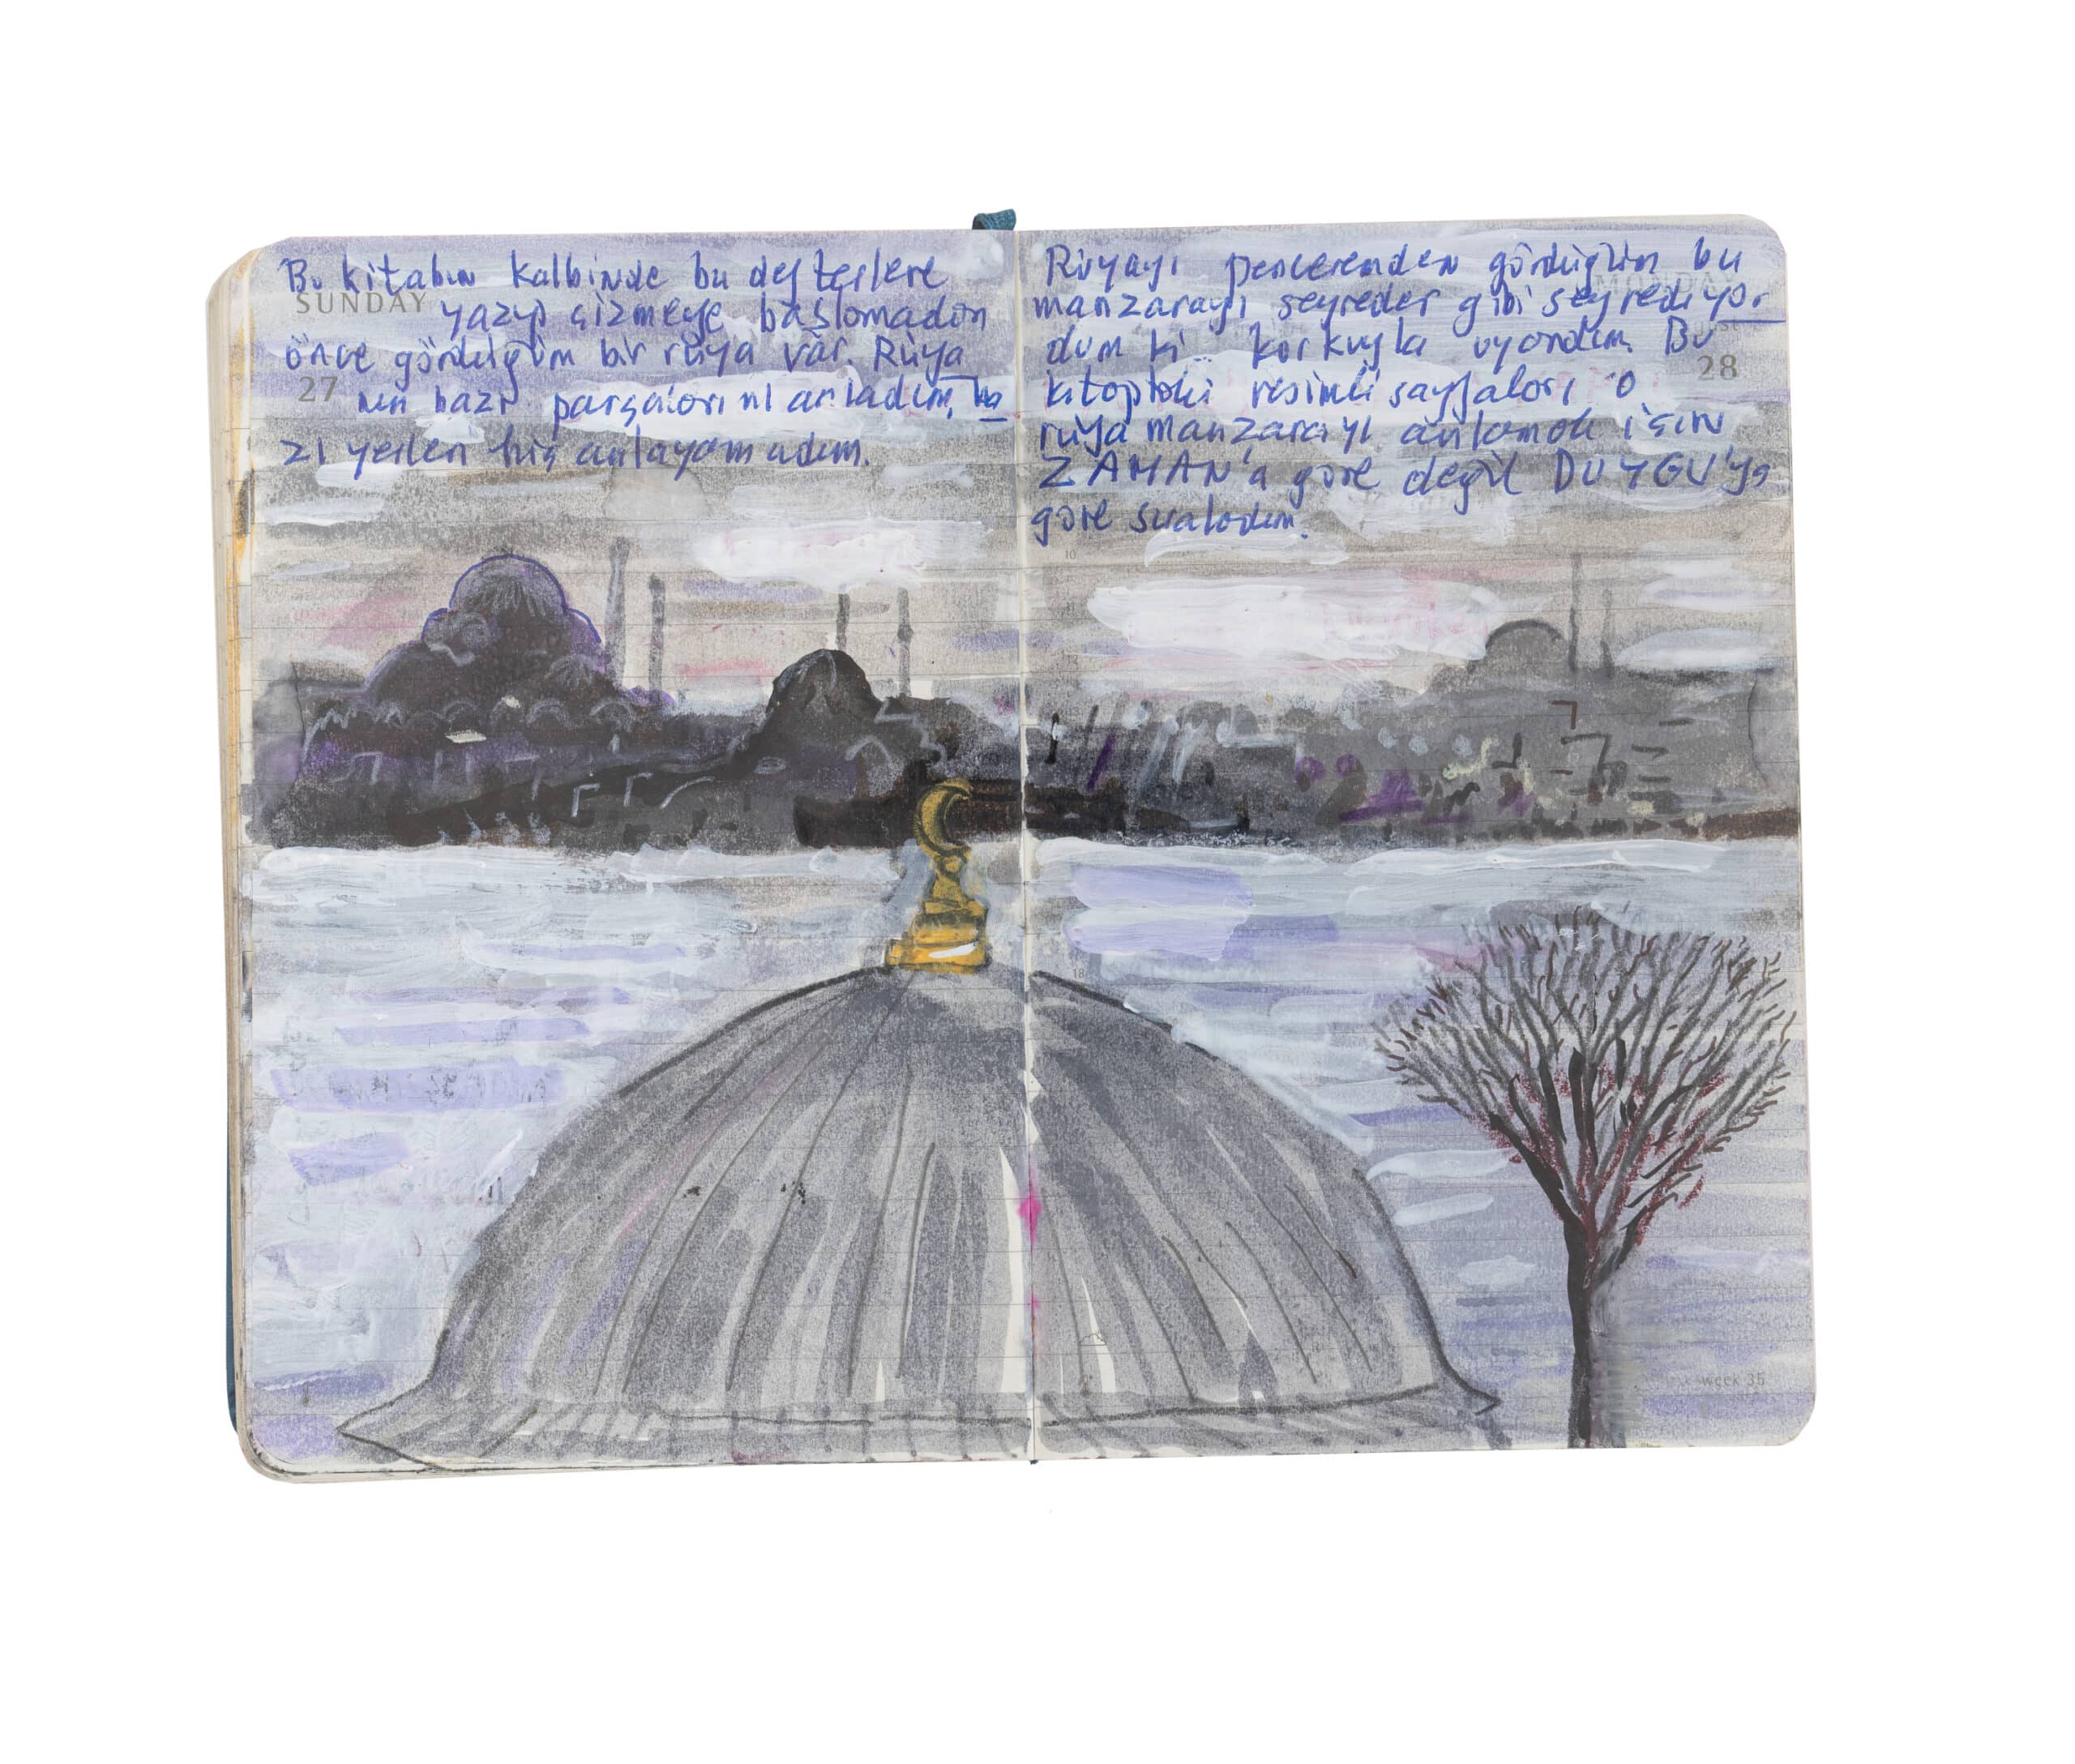 Bu kitabın kalbinde bu defterlere
SUNDAY
yazıp çizmeye başlamadan
önce gördüğüm bir rüya var. Rüya
27
nın bazı parçalarını anladım, ba
zı yerleri hiç anlayamadım.
Rüyayı penceremden gördüğüm bu
manzarayı seyreder gibi seyrediyor
dum ki korkuyla uyandım. Bu
28
kitaptaki resimli sayfaları o
rüya manzarayı anlamak için
ZAMAN'a göre değil DUYGU'ya
göre sıraladım.
10
18
week 35